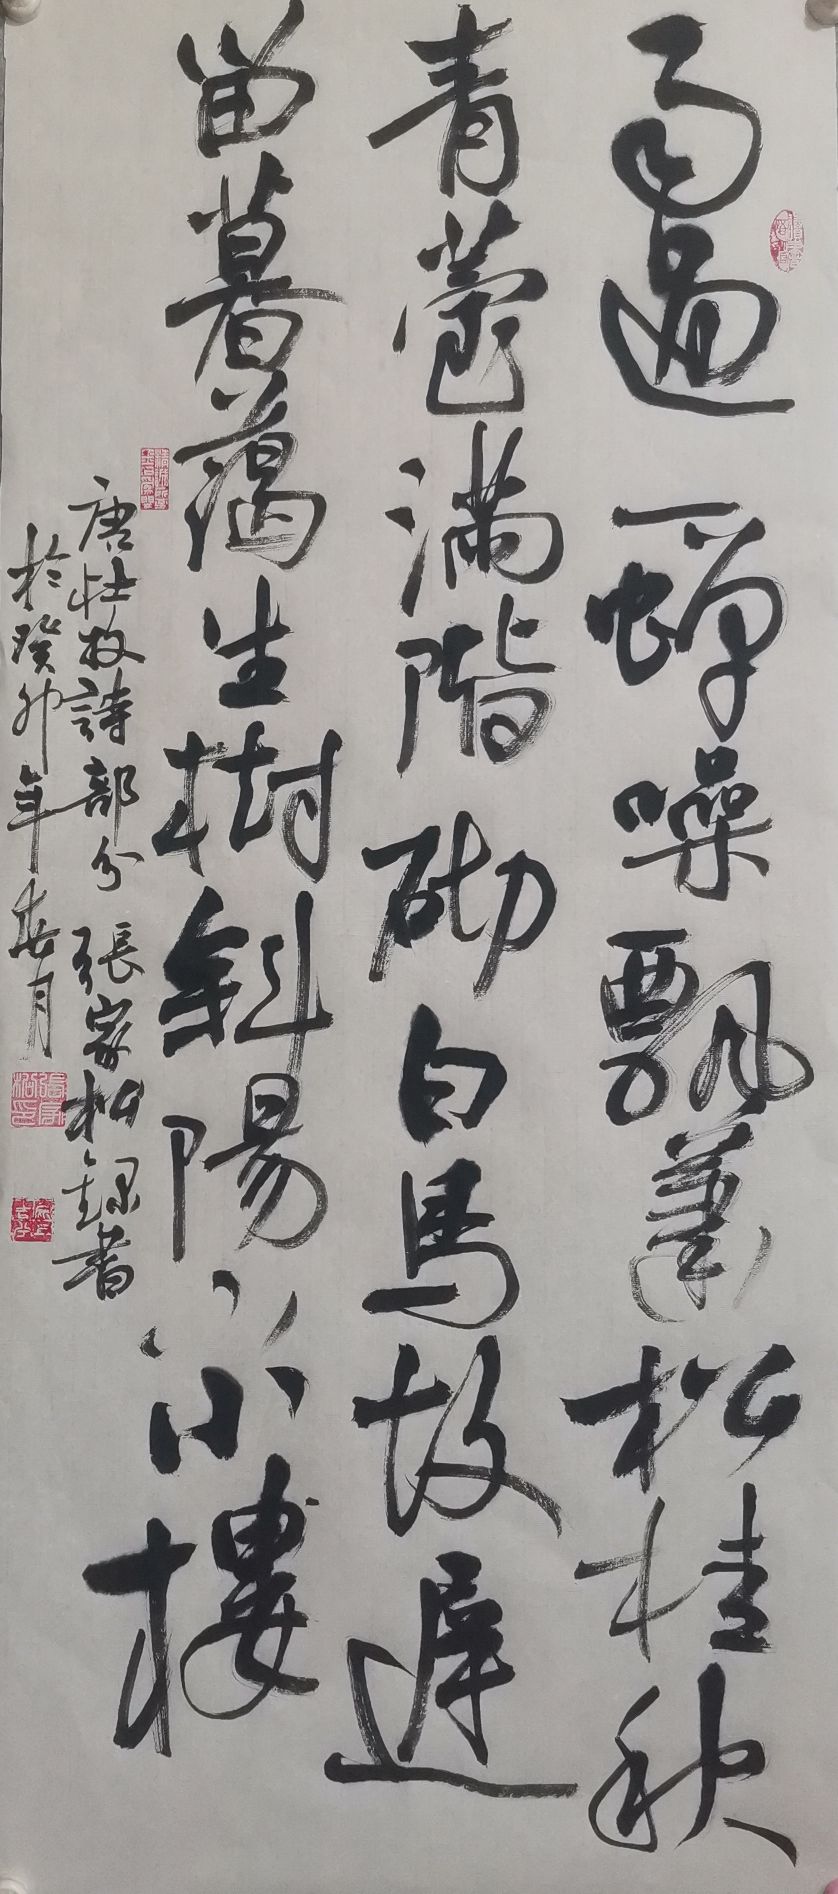 雨過一蟬噪飄蕭松桂秋
青薹滿階砌白馬故遲
留暮藹生樹斜陽下小樓
唐杜牧詩部分 張家松錄書
於癸卯年春月